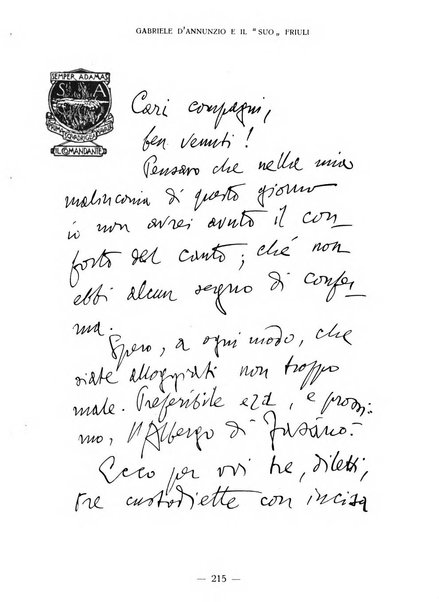 GABRIELE D'ANNUNZIO E IL "SUO„ FRIULI
SEMPER ADAMAS
S A
IL COMANDANTE
Cari compagni,
ben venuti!
Pensavo che nella mia
malinconia di questo giorno
io non avrei avuto il con-
forto del canto; ché non
ebbi alcun segno di confer-
ma.
Spero, a ogni modo, che
siate alloggiati non troppo
male. Preferibile era, e prossi-
mo, l'Albergo di Fasano.
Ecco per voi tre, diletti,
tre custodiette con incisa
— 215 —